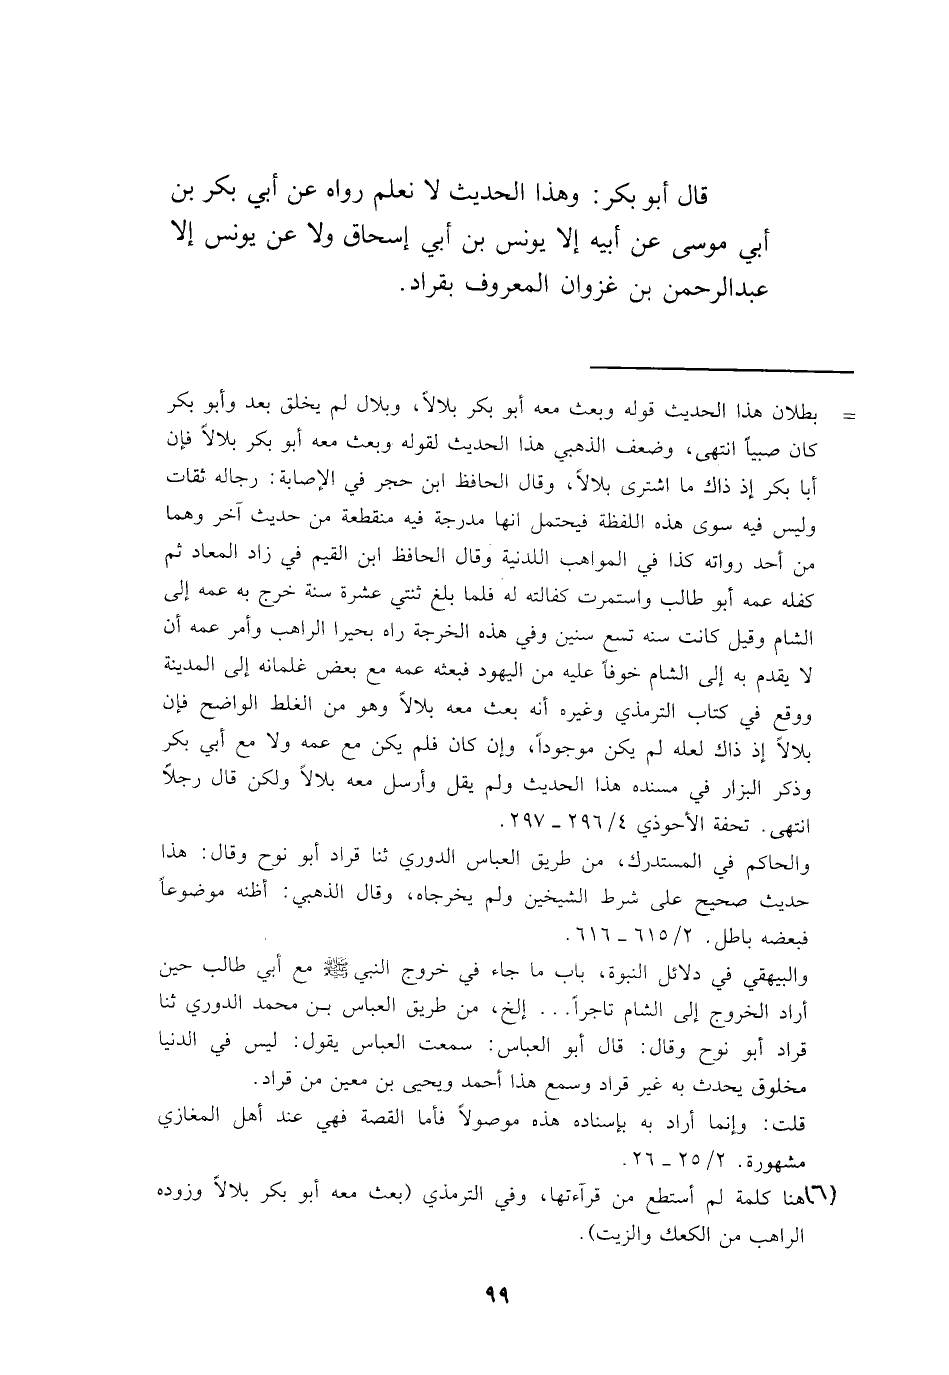 قال أبو بكر: وهذا الحديث لا نعلم رواه عن أبي بكر بن
أبي موسى عن أبيه إلا يونس بن أبي إسحاق ولا عن يونس إلا
عبدالرحمن بن غزوان المعروف بقراد.
= بطلان هذا الحديث قوله وبعث معه أبو بكر بلالاً، وبلال لم يخلق بعد وأبو بكر
كان صبياً انتهى، وضعف الذهبي هذا الحديث لقوله وبعث معه أبو بكر بلالاً فإن
أبا بكر إذ ذاك ما اشترى بلالاً، وقال الحافظ ابن حجر في الإصابة: رجاله ثقات
وليس فيه سوى هذه اللفظة فيحتمل انها مدرجة فيه منقطعة من حديث آخر وهما
من أحد رواته كذا في المواهب اللدنية وقال الحافظ ابن القيم في زاد المعاد ثم
كفله عمه أبو طالب واستمرت كفالته له فلما بلغ ثنتي عشرة سنة خرج به عمه إلى
الشام وقيل كانت سنه تسع سنين وفي هذه الخرجة راه بحيرا الراهب وأمر عمه أن
لا يقدم به إلى الشام خوفاً عليه من اليهود فبعثه عمه مع بعض غلمانه إلى المدينة
ووقع في كتاب الترمذي وغيره أنه بعث معه بلالاً وهو من الغلط الواضح فإن
بلالاً إذ ذاك لعله لم يكن موجوداً، وإن كان فلم يكن مع عمه ولا مع أبي بكر
وذكر البزار في مسنده هذا الحديث ولم يقل وأرسل معه بلالاً ولكن قال رجلاً
انتهى. تحفة الأحوذي ٤/ ٢٩٦ - ٢٩٧.
والحاكم في المستدرك، من طريق العباس الدوري ثنا قراد أبو نوح وقال: هذا
حديث صحيح على شرط الشيخين ولم يخرجاه، وقال الذهبي: أظنه موضوعاً
فبعضه باطل. ٢/ ٦١٥ - ٦١٦.
والبيهقي في دلائل النبوة، باب ما جاء في خروج النبي ﷺ مع أبي طالب حين
أراد الخروج إلى الشام تاجراً... إلخ، من طريق العباس بن محمد الدوري ثنا
قراد أبو نوح وقال: قال أبو العباس: سمعت العباس يقول: ليس في الدنيا
مخلوق يحدث به غير قراد وسمع هذا أحمد ويحيى بن معين من قراد.
قلت: وإنما أراد به بإسناده هذه موصولاً فأما القصة فهي عند أهل المغازي
مشهورة. ٢/ ٢٥ - ٢٦.
(٦) هنا كلمة لم أستطع من قرآءتها، وفي الترمذي (بعث معه أبو بكر بلالاً وزوده
الراهب من الكعك والزيت).
٩٩